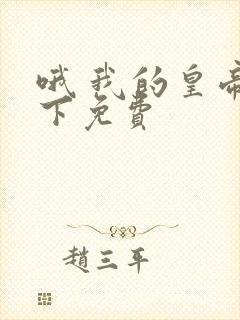 哦我的皇帝
下免費
趙三平